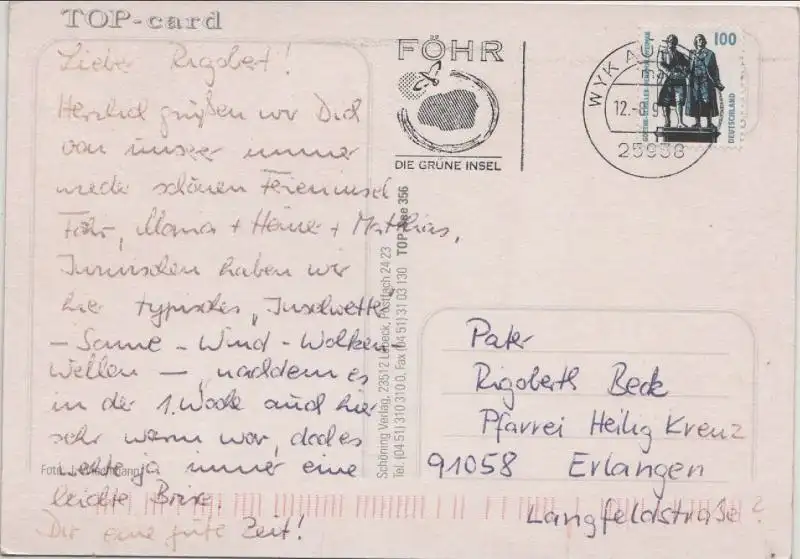 TOP-card
Lieber Rigobert!
Herzlich grüßen wir Dich
von unserer immer
wieder schönen Ferieninsel
Föhr, Mama + Heiner + Matthias,
Inzwischen haben wir
hier typisches „Inselwetter"
– Sonne – Wind – Wolken –
Wellen –, nachdem es
in der 1. Woche auch hier
sehr warm war, doch es
wehte ja immer eine
leichte Brise.
Dir eine gute Zeit!
Foto:
Schöning Verlag, 23512 Lübeck, Postfach 24 23
Tel. (04 51) 31 03 10 0, Fax (04 51) 31 03 130
TOP 356
FÖHR
DIE GRÜNE INSEL
WYK AUF
12.-8.9
25938
100
DEUTSCHLAND
Pater
Rigoberth Beck
Pfarrei Heilig Kreuz
91058 Erlangen
Langfeldstraße 2